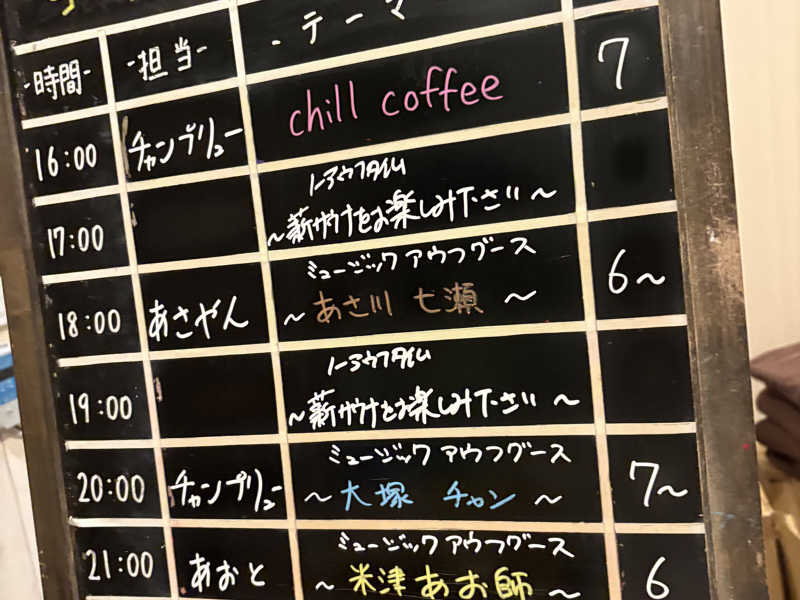 -時間-
-担当-
-テーマ
16:00
チャンプリュー
chill coffee
7
17:00
ノーアウフタイム
~薪サウナをお楽しみ下さい~
18:00
あさやん
ミュージック アウフグース
~あさ川 七瀬~
6~
19:00
ノーアウフタイム
~薪サウナをお楽しみ下さい~
20:00
チャンプリュー
ミュージック アウフグース
~大塚 チャン~
7~
21:00
あおと
ミュージック アウフグース
~米津あお師~
6